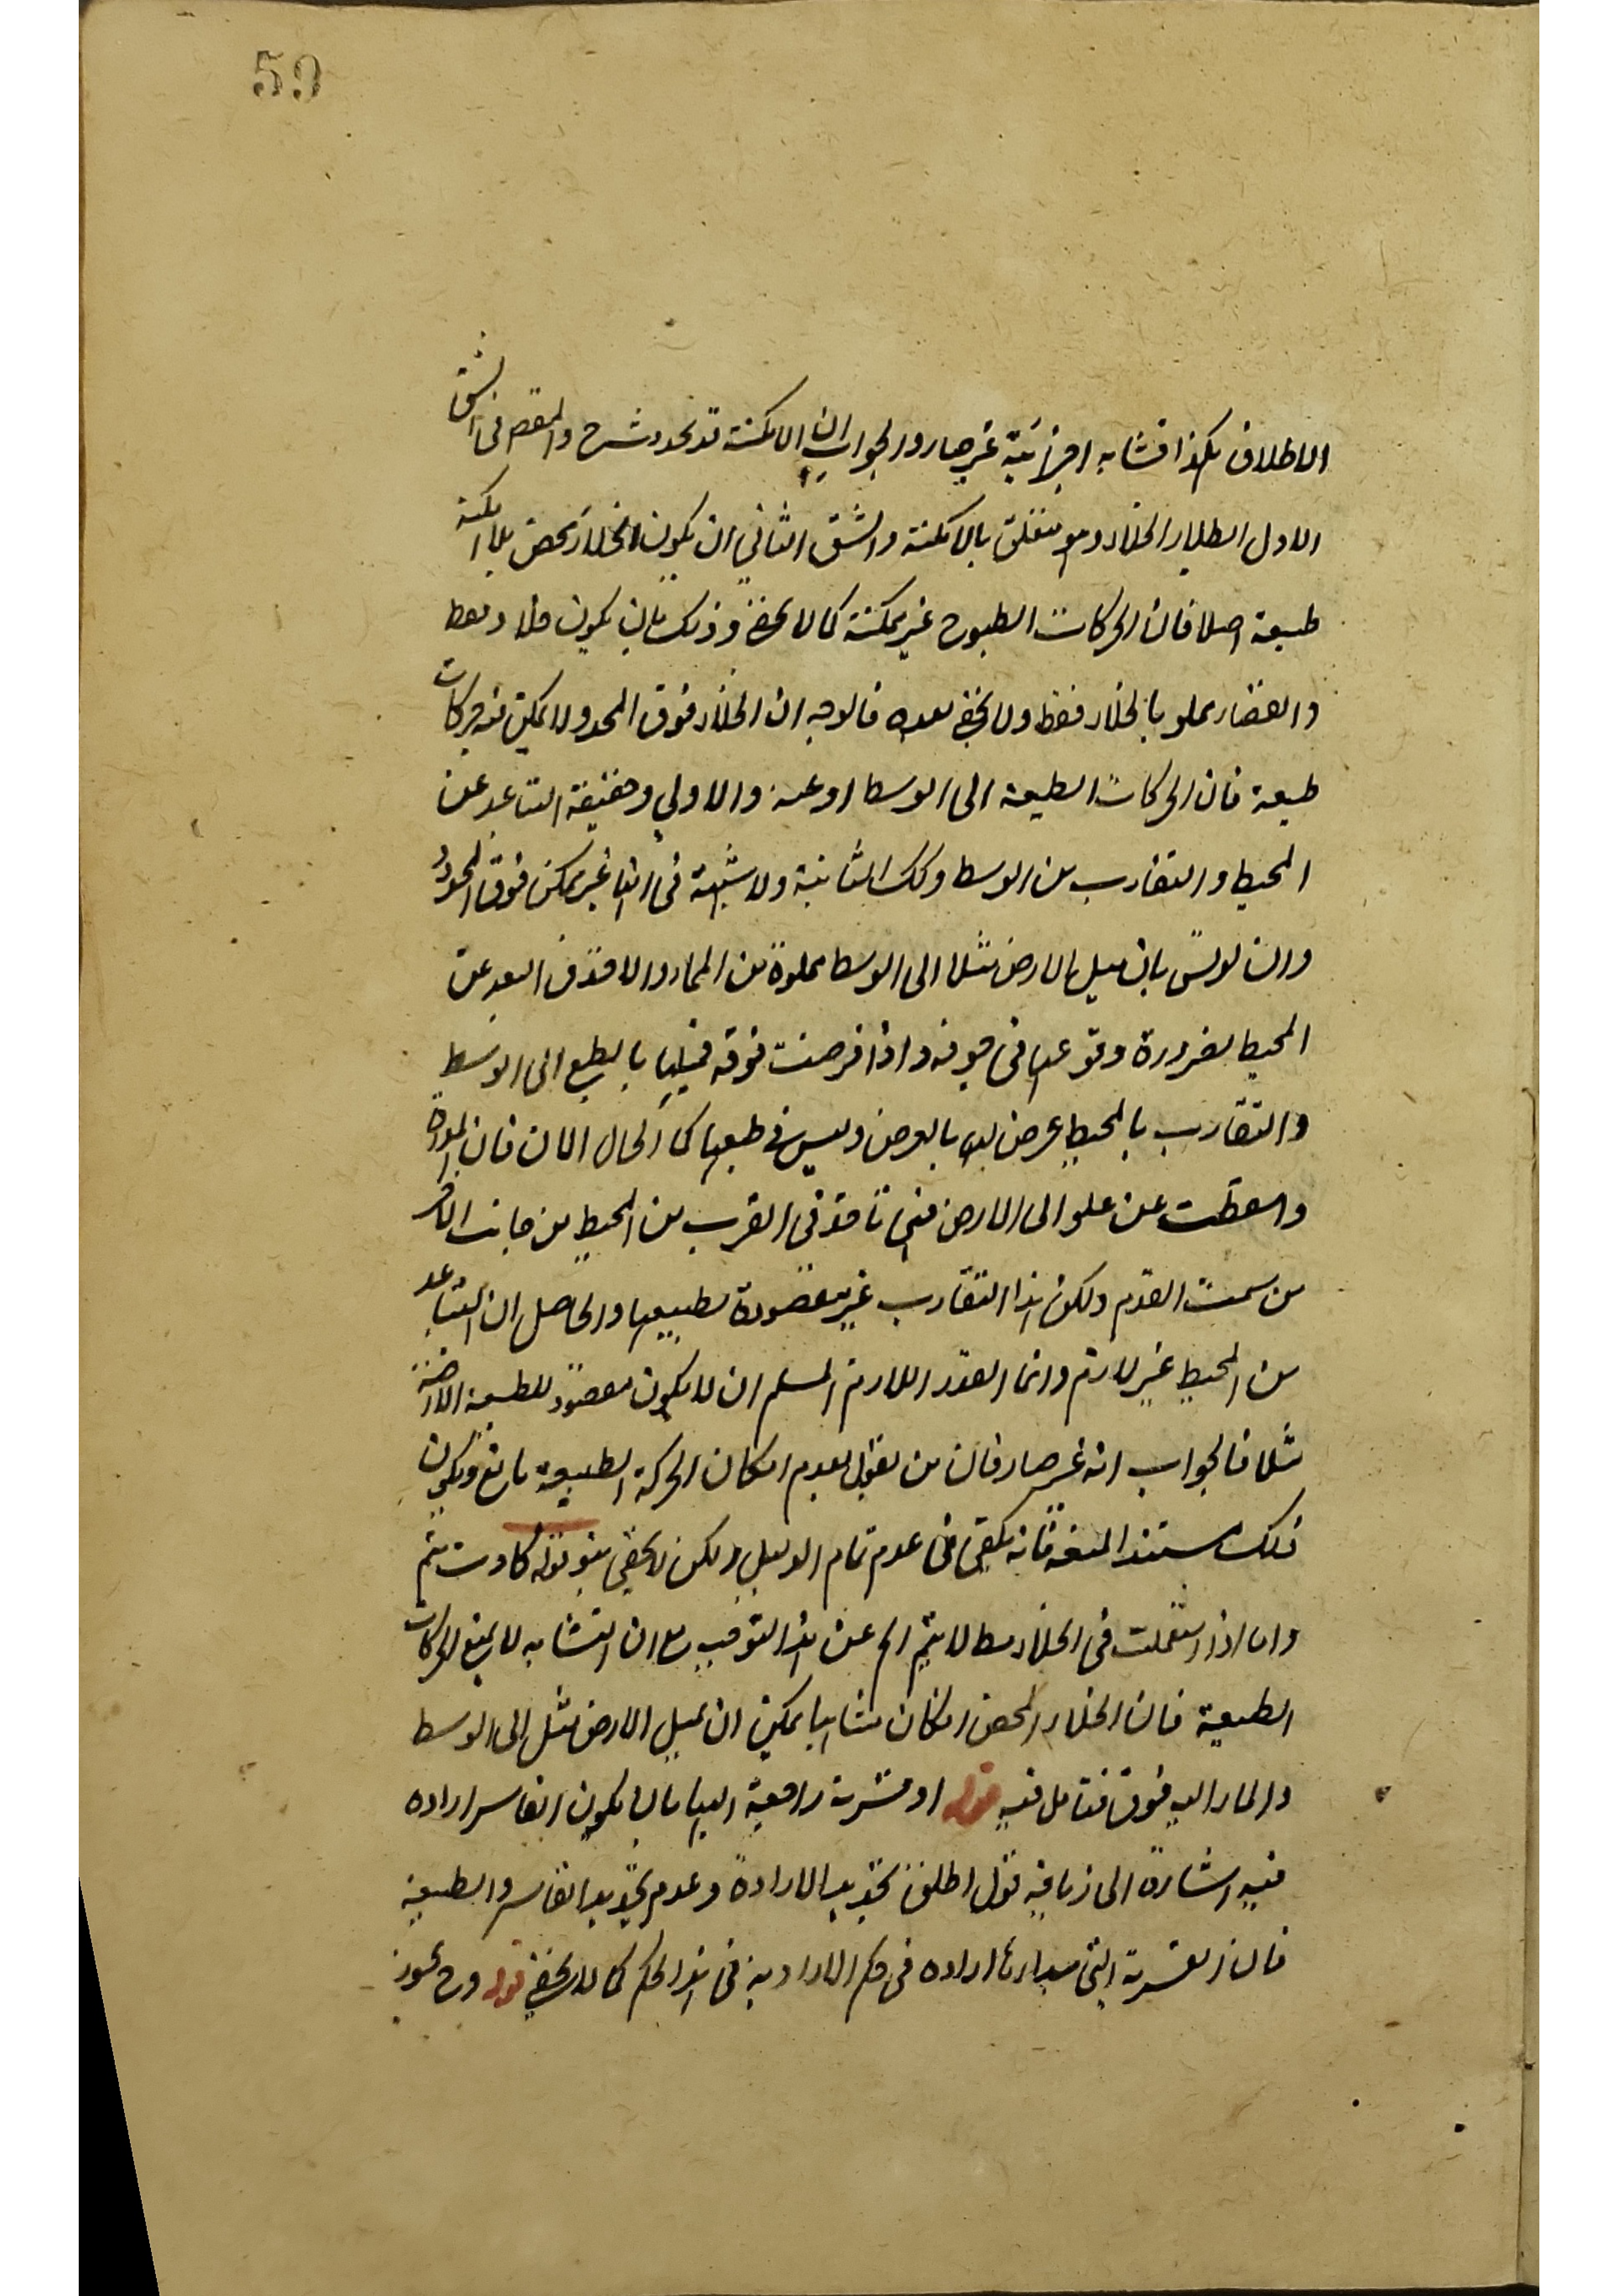 59
الاطلاق هكذا فتشابه اجزائية غير ضار والجواب ان الامكنة قد تحدد شرح والمقص فى الشق
الاول ابطال الخلاء وهو متعلق بالامكنة والشق الثاني ان يكون الخلاء محض بلا امكنة
طبيعة اصلا فان الحركات الطبيعة غير ممكنة كما لا يخفى وذلك بان يكون خلاء فقط
والفضاء مملو بالخلاء فقط ولا يخفى بعده فالوجه ان الخلاء فوق المحدد لا يمكن فيه حركات
طبيعة فان الحركات الطبيعة الى الوسط او عنه والاولى حقيقة التباعد عن
المحيط والتقارب من الوسط وكك الثانية ولا شبهة فى انها غير ممكن فوق المحدد
وان نوقش بان ميل الارض مثلا الى الوسط مملوة من الماء والا فذلك البعد عن
المحيط لضرورة وقوعها فى جوفه واذا فرضت فوقه فميلها بالطبع الى الوسط
والتقارب بالمحيط عرض لها بالعرض وليس فى طبعها كما الحال الان فان المدرة
واسقطت عن علو الى الارض فهى تاخذ فى القرب من المحيط من جانب الاخر
من سمت القدم ولكن هذا التقارب غير مقصودة لطبيعتها والحاصل ان التباعد
من المحيط غير لازم وانما القدر اللازم المسلم ان لا يكون مقصود للطبيعة الارضية
مثلا فالجواب انه غير ضار فان من يقول بعدم امكان الحركة الطبيعة مانع ويكون
ذلك مستند المنع فانه يكفى فى عدم تمام الدليل ولكن لا يخفى قوله كادت تتم
واما اذا استعملت فى الخلاء مطلا لا يتم الخ عن هذا التوجيه مع ان التشابه لا يمنع الحركات
الطبيعة فان الخلاء المحض وانكان متشابها يمكن ان يميل الارض مثل الى الوسط
والماء اليه فوق فتامل فيه قوله او قسرية راجعة اليها بان يكون القاسر اراده
فيه اشارة الى زيافة قول اطلق تحديد الارادة وعدم تحديد القاسر والطبيعة
فان القسرية التى مبدأها اراده فى حكم الارادية فى هذا الحكم كما لا يخفى قوله وح يجوز